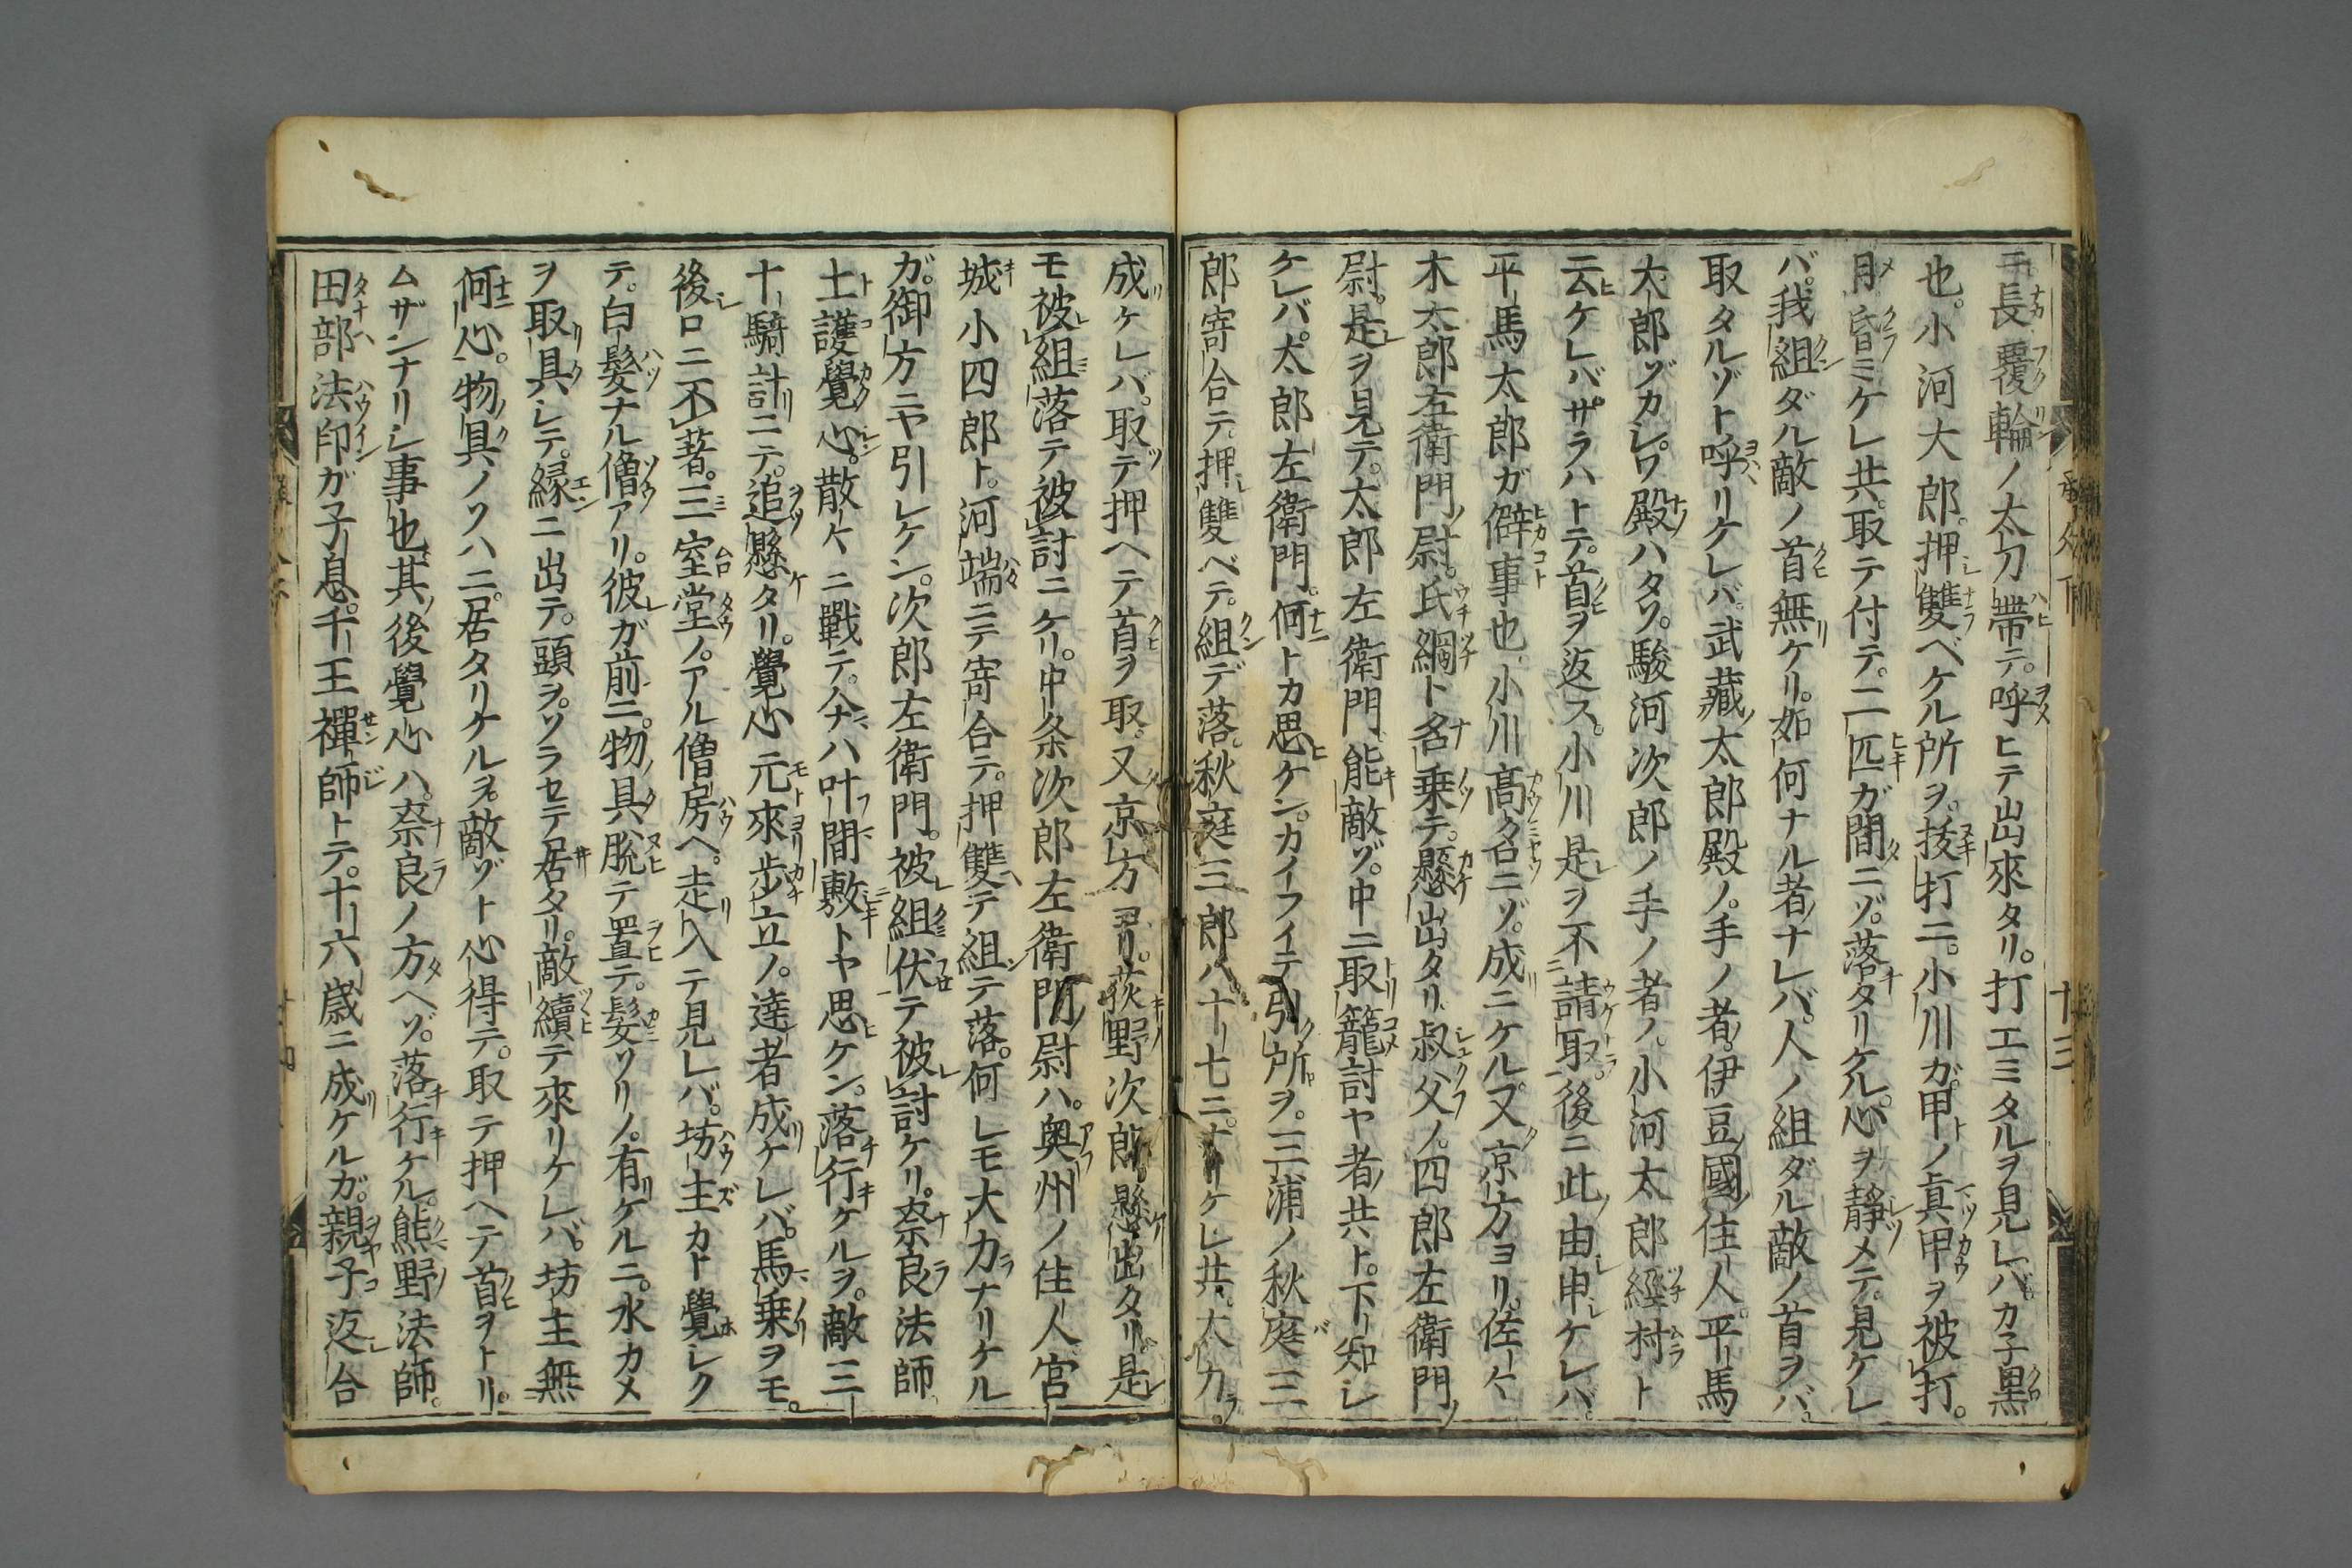 長覆輪ノ太刀帶テ。呼ヒテ出來タリ。打エミタルヲ見レバ。カ子黒
也。小河大郎。押雙ベケル所ヲ。抜打ニ。小川ガ。甲ノ真甲ヲ被打。
目昏ミケレ共。取テ付テ。二匹ガ間ニゾ。落タリケル。心ヲ靜メテ。見ケレ
バ。我組ダル敵ノ首無ケリ。如何ナル者ナレバ。人ノ組ダル敵ノ首ヲバ。
取タルゾト呼リケレバ。武藏太郎殿ノ。手ノ者。伊豆國住人。平馬
太郎ゾカシ。ワ殿ハタソ。駿河次郎ノ手ノ者ノ。小河太郎經村ト
云ケレバ。サラハトテ。首ヲ返ス。小川是ヲ不請取。後ニ此由申ケレバ。
平馬太郎ガ僻事也。小川高名ニゾ。成ニケル。又京方ヨリ。佐々
木太郎左衛門尉。氏綱ト名乗テ。懸出タリ。叔父ノ。四郎左衛門
尉。是ヲ見テ。太郎左衛門。能敵ゾ。中ニ取籠討ヤ者共ト。下知シ
ケレバ。太郎左衛門。何トカ思ケン。カイフイテ引所ヲ。三浦ノ秋庭三
郎寄合テ。押雙ベテ。組デ落。秋庭三郎八十七ニ。ナリケレ共。大力。
成ケレバ。取テ押ヘテ首ヲ取。又京方ヨリ。荻野次郎懸出タリ。是
モ被組落テ被討ニケリ。中条次郎左衛門尉ハ。奥州ノ住人宮
城小四郎ト。河端ニテ寄合テ。押雙テ組テ落。何レモ大力ナリケル
ガ。御方ニヤ引レケン。次郎左衛門。被組伏テ被討ケリ。奈良法師
土護覺心。散々ニ戰テ。今ハ叶間敷トヤ思ケン。落行ケルヲ。敵三
十騎計ニテ。追懸タリ。覺心元來歩立ノ。達者成ケレバ。馬乗ヲモ。
後ロニ不著。三室堂ノ。アル僧房ヘ。走入テ見レバ。坊主カト覺シク
テ。白髪ナル僧アリ。彼ガ前ニ。物具脱テ置テ。髪ソリノ。有ケルニ。水カメ
ヲ取具シテ。縁ニ出テ。頭ヲ。ソラセテ居タリ。敵續テ來リケレバ。坊主無
何心。物具ノソハニ。居タリケルヲ。敵ゾト心得テ。取テ押ヘテ首ヲトリ。
ムザンナリシ事也。其後覺心ハ。奈良ノ方ヘゾ。落行ケル。熊野法師。
田部法印ガ子息。千王禪師トテ。十六歳ニ成ケルガ。親子返合